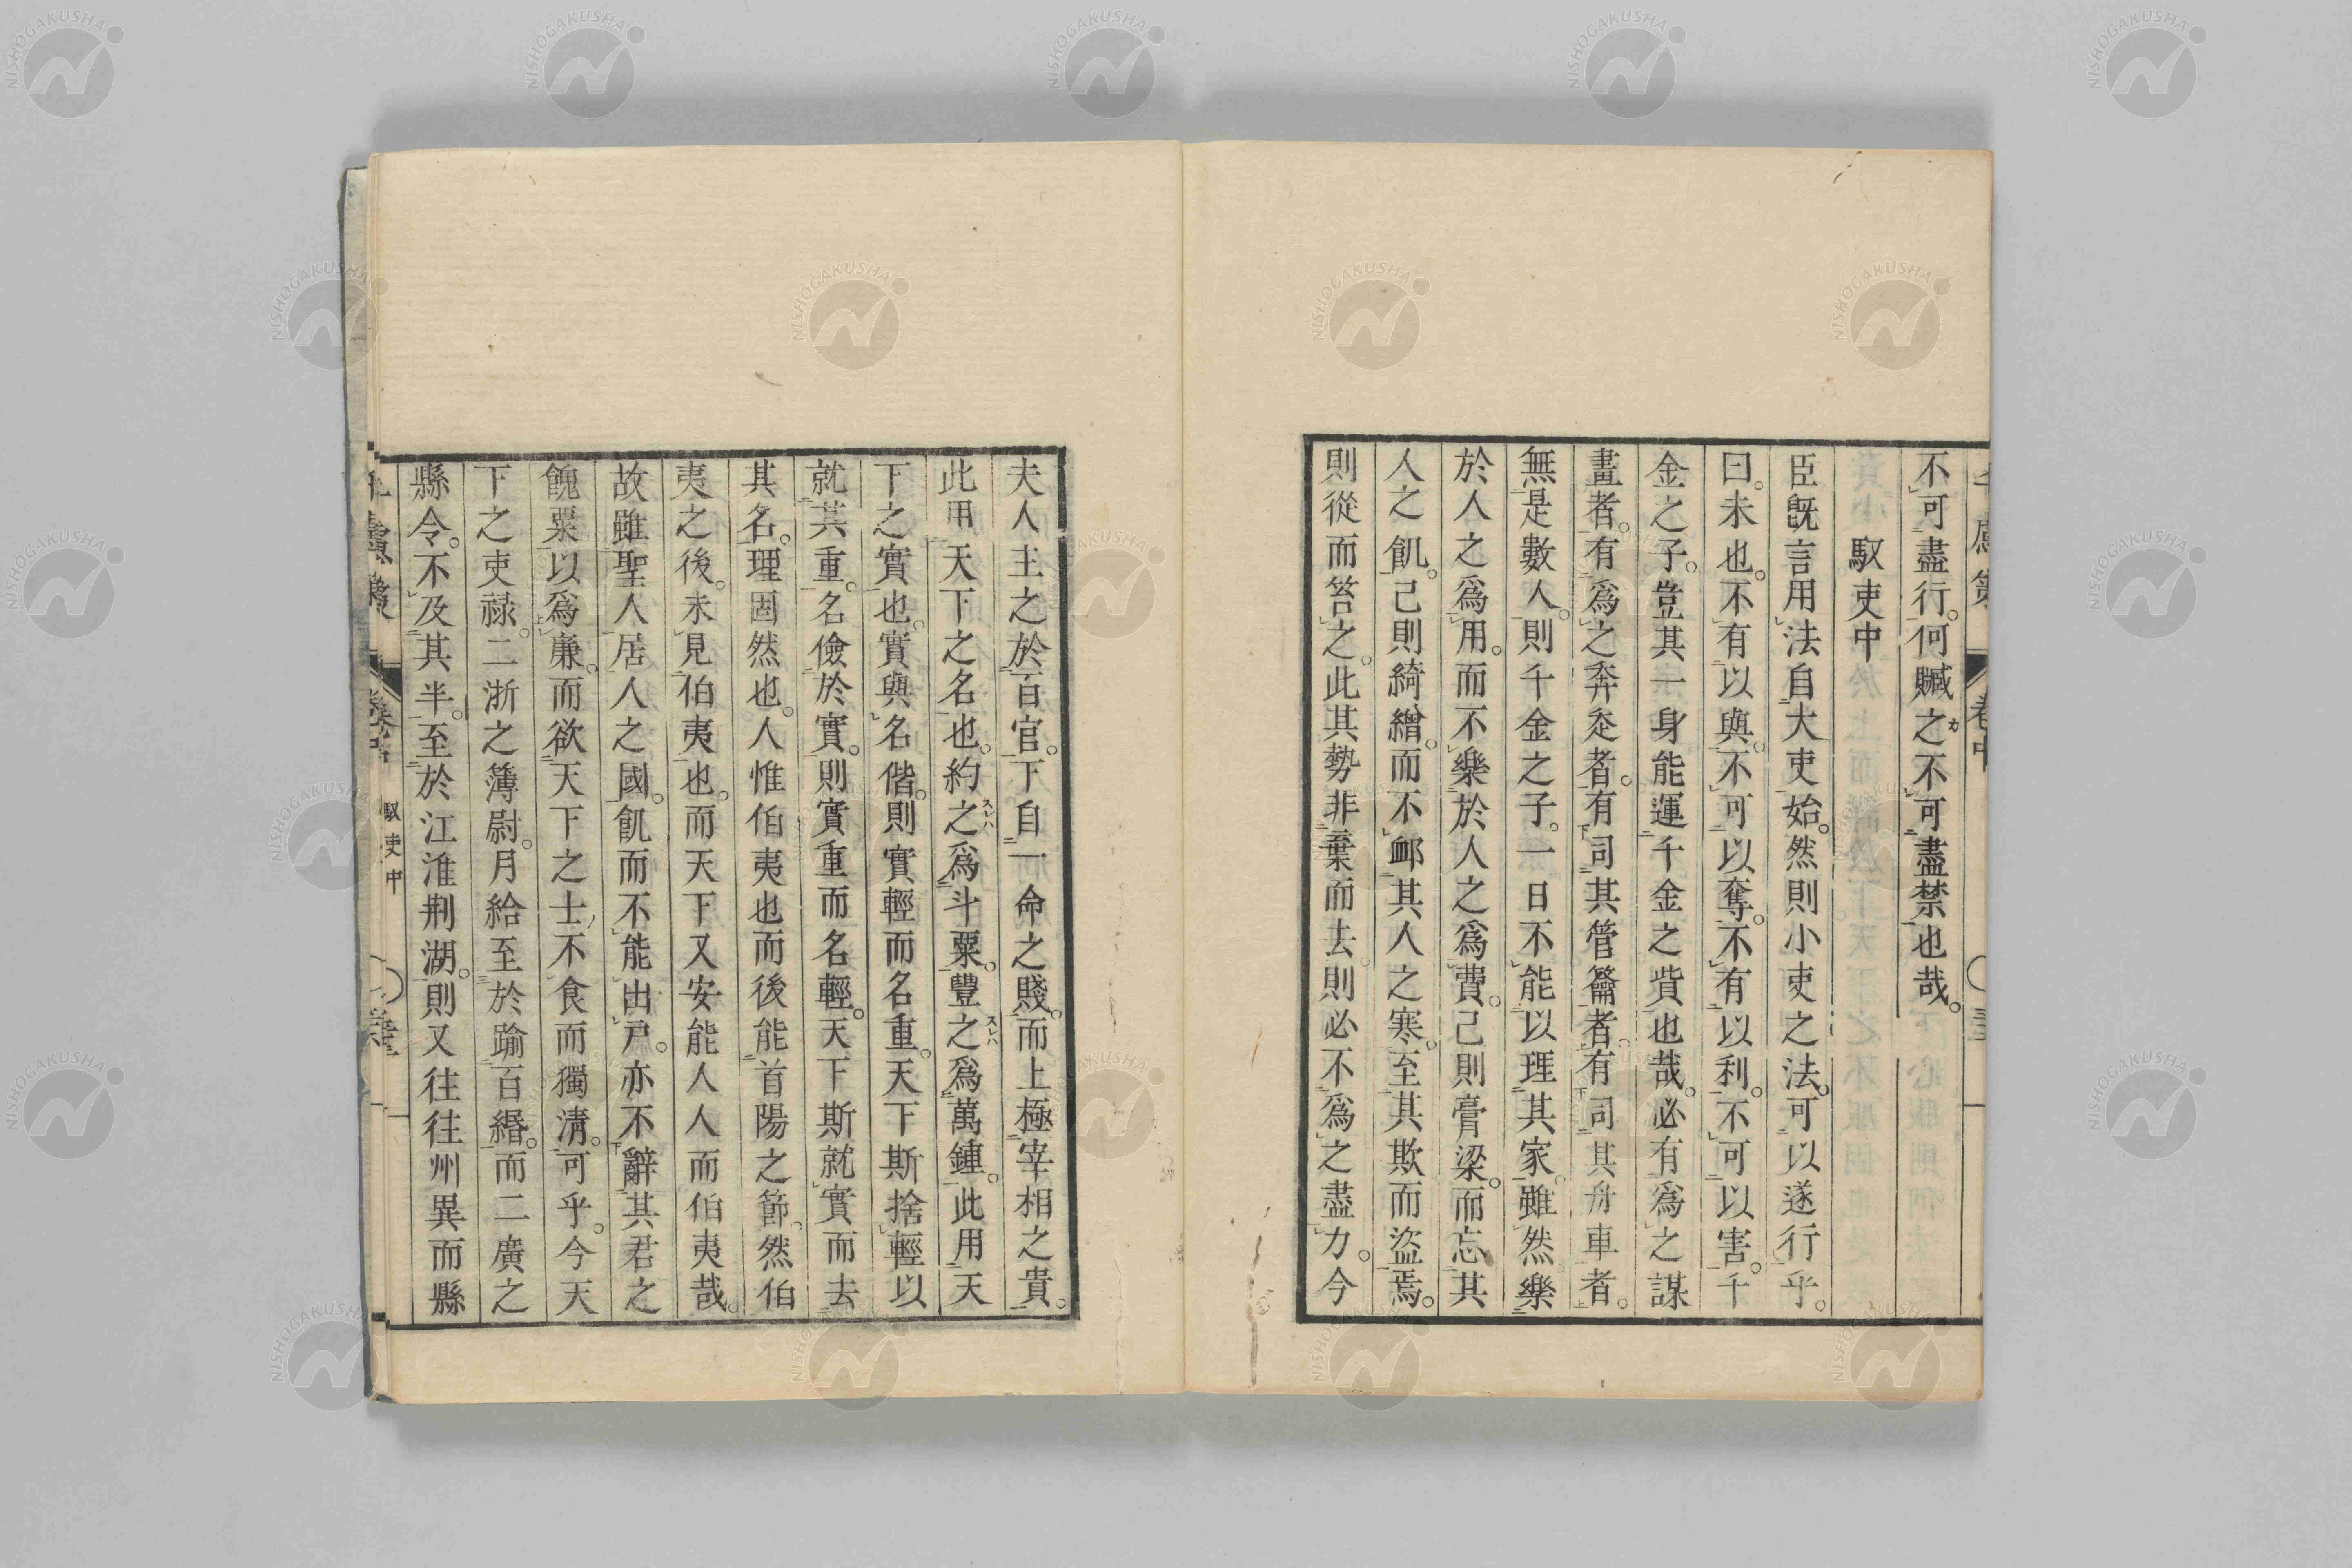 不可盡行。何贓之不可盡禁也哉。
馭吏中
臣既言用法自大吏始。然則小吏之法。可以遂行乎。
曰。未也。不有以與。不可以奪。不有以利。不可以害。千
金之子。豈其一身能運千金之貲也哉。必有爲之謀
畫者。有爲之奔走者。有司其管籥者。有司其舟車者。
無是數人。則千金之子。一日不能以理其家。雖然樂
於人之爲用。而不樂於人之爲費。己則膏粱。而忘其
人之飢。己則綺繒。而不卹其人之寒。至其欺而盜焉。
則從而笞之。此其勢非棄而去。則必不爲之盡力。今
夫人主之於百官。下自一命之賤。而上極宰相之貴。
此用天下之名也。約之爲斗粟。豐之爲萬鍾。此用天
下之實也。實與名偕。則實輕而名重。天下斯捨輕以
就其重。名儉於實。則實重而名輕。天下斯就實而去
其名。理固然也。人惟伯夷也而後能首陽之節。然伯
夷之後。未見伯夷也。而天下又安能人人而伯夷哉。
故雖聖人居人之國。飢而不能出戶。亦不辭其君之
餽粟以爲廉。而欲天下之士不食而獨清。可乎。今天
下之吏祿。二浙之簿尉。月給至於踰百緡。而二廣之
縣令。不及其半。至於江淮荆湖。則又往往州異而縣
馭吏中
NISHOGAKUSHA